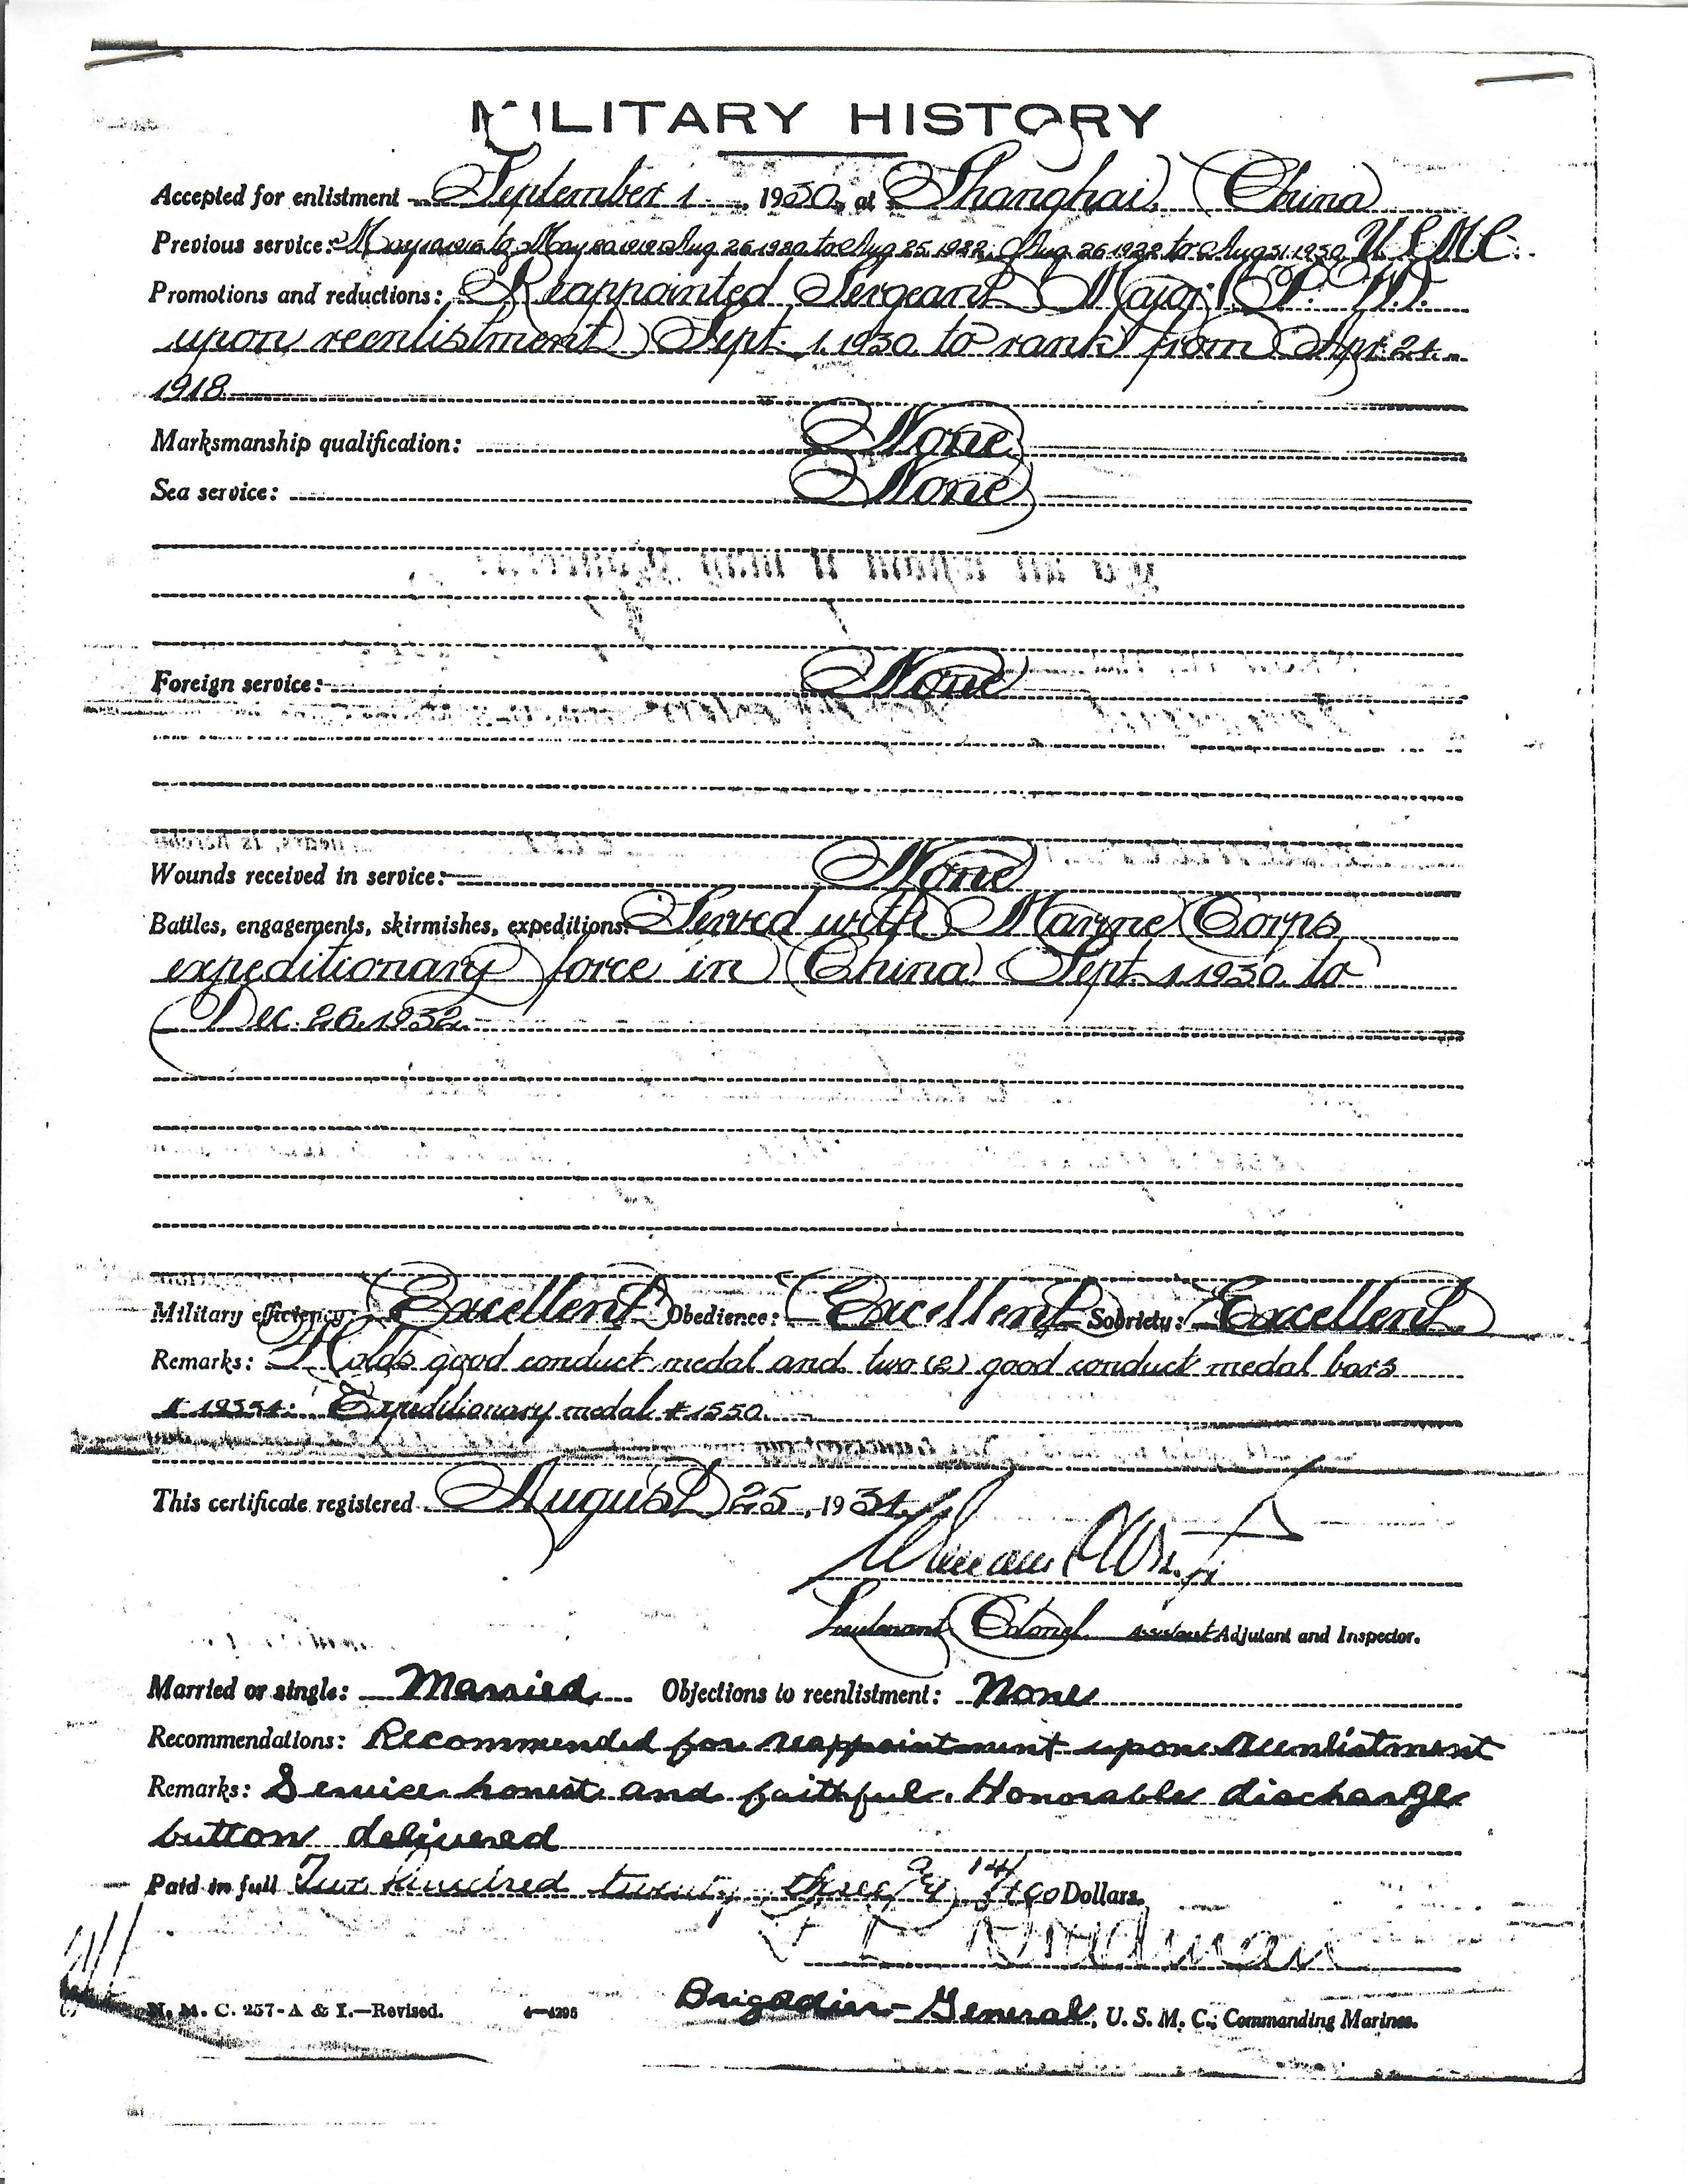 MILITARY HISTORY
Accepted for enlistment September 1, 1930, at Shanghai, China
Previous service: to Aug. 25, 1922, Aug. 26 1922 to Aug 31 1930 U.S.M.C.
Promotions and reductions: Reappointed Sergeant Major P. W.
upon reenlistment Sept. 1, 1930, to rank from Apr. 24,
1918
Marksmanship qualification: None
Sea service: None
Foreign service: None
Wounds received in service: None
Battles, engagements, skirmishes, expeditions: Served with Marine Corps
expeditionary force in China Sept. 1, 1930, to
Dec. 26, 1932.
Military efficiency: Excellent Obedience: Excellent Sobriety: Excellent
Remarks: Holds good conduct medal and two (2) good conduct medal bars
# 19354: Expeditionary medal # 1550.
This certificate registered August 25, 1934.
Lieutenant Colonel Assistant Adjutant and Inspector.
Married or single: Married Objections to reenlistment: None
Recommendations: Recommended for reappointment upon reenlistment
Remarks: Service honest and faithful. Honorable discharge
button delivered
Paid in full Two hundred twenty three & 14/100 Dollars.
Brigadier-General, U. S. M. C., Commanding Marines.
N. M. C. 257-A & I.—Revised. 4—4296